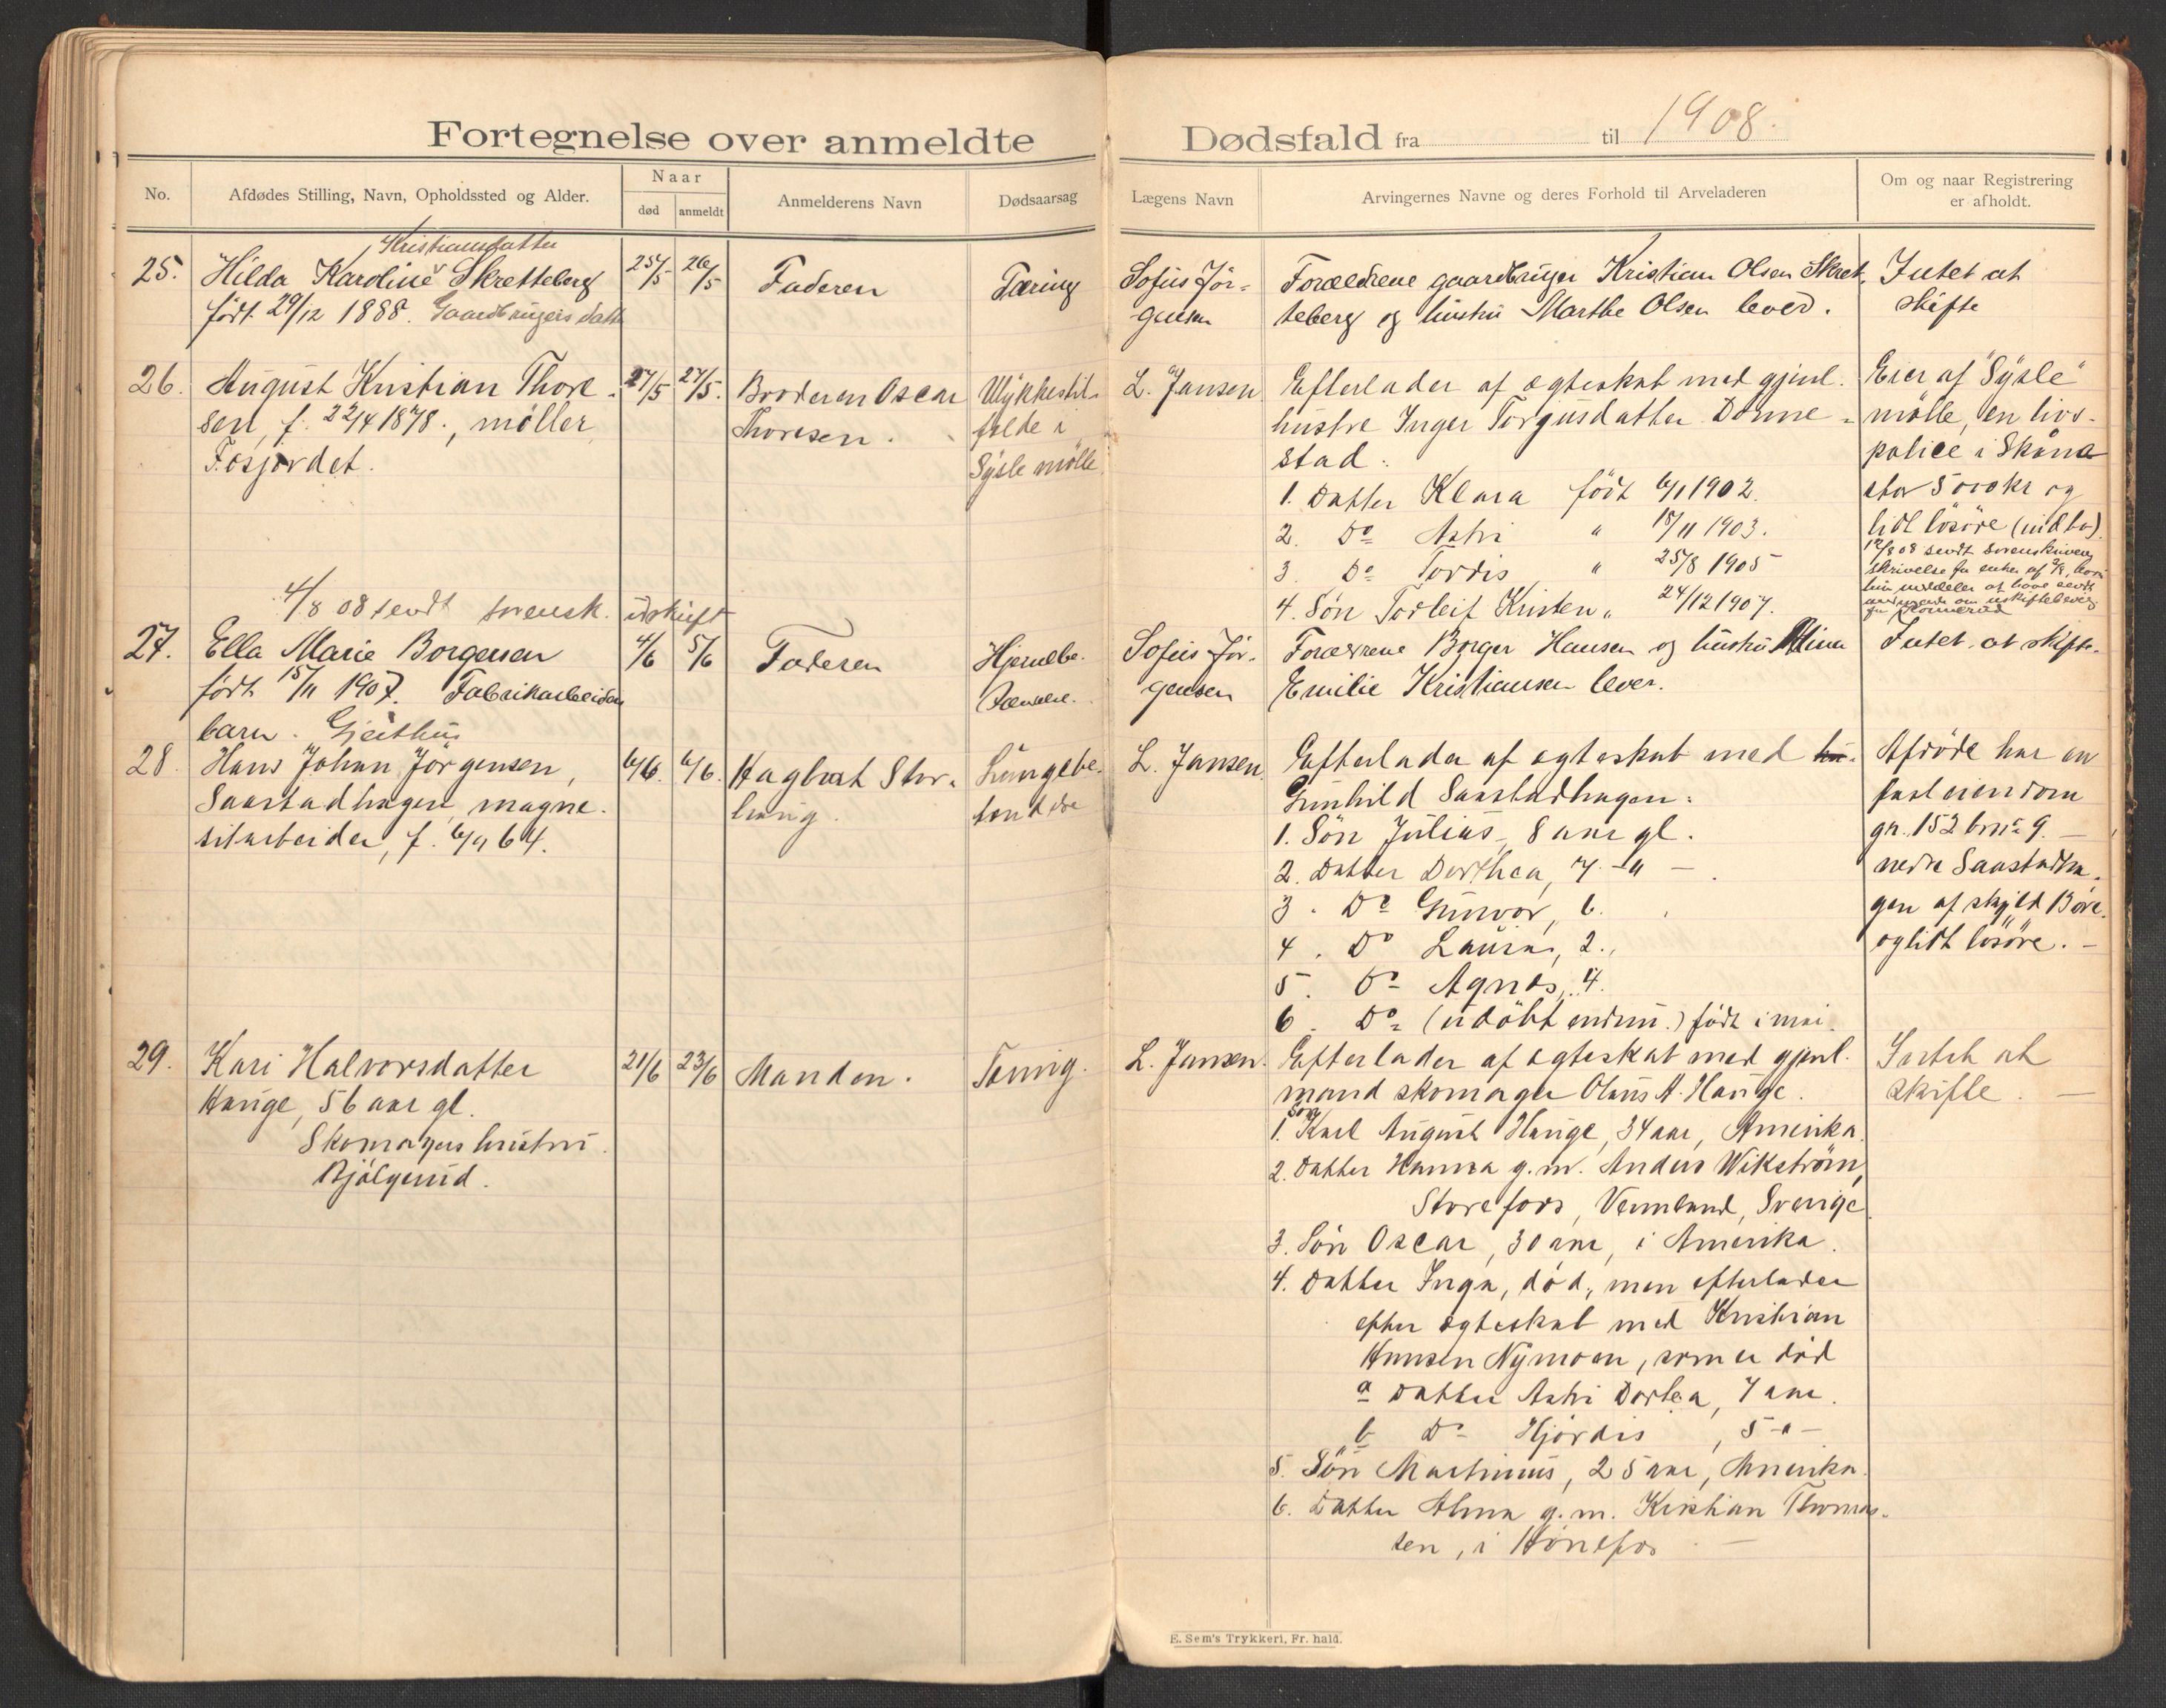 Fortegnelse over anmeldte Dødsfald fra til 1908.
No. Afdødes Stilling, Navn, Opholdssted og Alder. Naar død anmeldt Anmelderens Navn Dødsaarsag Lægens Navn Arvingernes Navne og deres Forhold til Arveladeren Om og naar Registrering er afholdt.
Kristiansdatter
25. Hilda Karoline Skretteberg 25/5 26/5 Faderen Tæring Sofus Jör-
gensen
født 29/12 1888. Gaardbrugers datter
Forældrene gaardbruger Kristian Olsen Skret-
teberg og hustru Marthe Olsen lever.
Intet at
skifte
26. August Kristian Thore- 27/5 27/5. Broderen Oscar
Thoresen.
sen, f. 22/4 1878., möller
Fosjordet.
Ulykkestil-
felde i
Sysle mölle
L. Jansen
Efterlader af ægteskab med gjenl.
hustru Inger Torgusdatter Denne-
stad:
1. Datter Klara födt 6/1 1902.
2. Do Astri " 18/11 1903.
3. Do Tordis " 25/8 1905
4. Sön Torleif Kristen " 24/12 1907.
Eier af "Sysle"
mölle, en livs-
police i Skåne
stor 5000 kr og
lidt lösöre (indbo).
12/8 08 sendt sorenskriveren
skrivelse fra enken af
hun meddeler at have sendt
4/8 08 sendt sorensk. udskrift
27. Ella Marie Borgersen 4/6 5/6 Faderen Hjernebe-
tændelse.
født 15/11 1907. Fabrikarbeider
barn. Gjeithus
Sofus Jör-
gensen
Forældrene Borger Hansen og hustru Stina
Emilie Kristiansen lever.
Intet at skifte.
28. Hans Johan Jörgensen, 6/6. 6/6. Hagbart Stor-
haug.
Saastadhagen, magne-
sitarbeider, f. 6/9 64.
Lungebe-
tændelse
L. Jansen.
Efterlader af ægteskab med
Gunhild Saastadhagen:
1. Sön Julius, 8 aar gl.
2. Datter Dorthea, 7 -"-
3. Do Gunvor, 6.
4. Do Laura, 2.
5. Do Agnes, 4.
6. Do (udöbt endnu.) født i mai.
Afdöde har en
fast eiendom
gn. 152 brn. 9.
nedre Saastadha-
gen af skyld 13 øre
og lidt lösöre.
29. Kari Halvorsdatter 21/6 23/6 Manden. Tæring. L. Jansen.
Hauge, 56 aar gl.
Skomagers hustru.
Bjölgerud.
Efterlader af ægteskab med gjenl.
mand skomager Olaus A. Hauge.
Sön
1. Karl August Hauge, 34 aar, Amerika.
2. Datter Hanna g.m. Anders Wikström,
Storefors, Vermland, Sverige.
3. Sön Oscar, 30 aar, i Amerika.
4. Datter Inga, död, men efterlader
efter ægteskab med Kristian
Hansen Nymoen, som er död
a Datter Astri Dortea, 7 aar.
b Do Hjördis, 5 -"-
5. Sön Martinius, 25 aar, Amerika.
6. Datter Alma g.m. Kristian Thomas-
sen, i Hönefos
Intet at
skifte.
E. Sem's Trykkeri, Fr. hald.